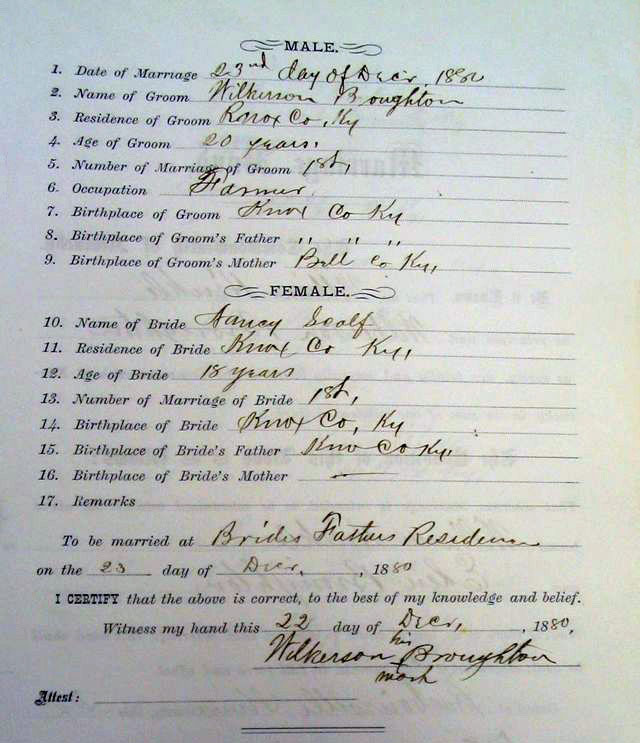 MALE.
1. Date of Marriage 23rd day of Decr, 1880
2. Name of Groom Wilkerson Broughton
3. Residence of Groom Knox Co, Ky
4. Age of Groom 20 years.
5. Number of Marriage of Groom 1st,
6. Occupation Farmer,
7. Birthplace of Groom Knox Co Ky
8. Birthplace of Groom's Father " " "
9. Birthplace of Groom's Mother Bell Co Ky,
FEMALE.
10. Name of Bride Nancy Scalf
11. Residence of Bride Knox Co Ky,
12. Age of Bride 18 years
13. Number of Marriage of Bride 1st,
14. Birthplace of Bride Knox Co, Ky
15. Birthplace of Bride's Father Kno Co Ky,
16. Birthplace of Bride's Mother —
17. Remarks
To be married at Brides Fathers Residence
on the 23 day of Decr, , 1880
I CERTIFY that the above is correct, to the best of my knowledge and belief.
Witness my hand this 22 day of Decr, , 1880,
his
Wilkerson Broughton
mark
Attest: